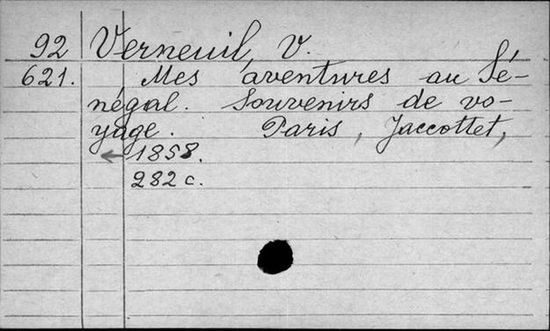 92 Verneuil, V.
621. Mes aventures au Sé-
négal. Souvenirs de vo-
yage. Paris, Jaccottet,
← 1858.
282 c.